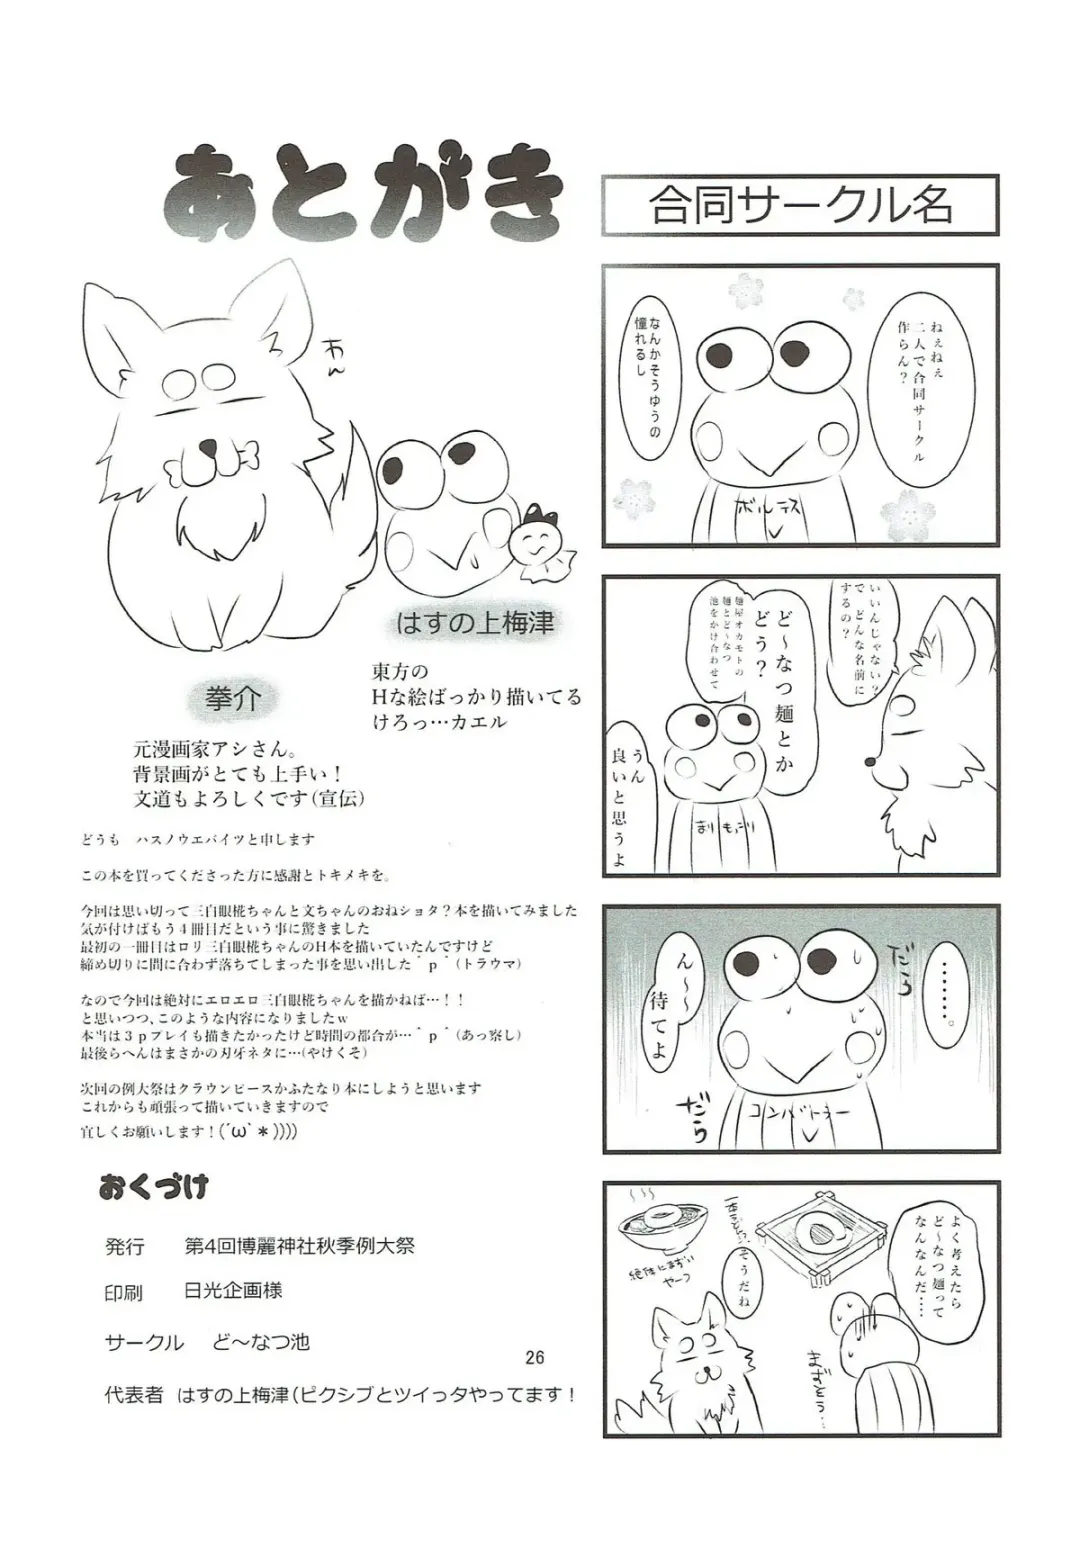 あとがき
わん
はすの上梅津
東方の
Hな絵ばっかり描いてる
けろっ…カエル
拳介
元漫画家アシさん。
背景画がとても上手い！
文道もよろしくです(宣伝)
どうも　ハスノウエバイツと申します
この本を買ってくださった方に感謝とトキメキを。
今回は思い切って三白眼椛ちゃんと文ちゃんのおねショタ？本を描いてみました
気が付けばもう４冊目だという事に驚きました
最初の一冊目はロリ三白眼椛ちゃんのH本を描いていたんですけど
締め切りに間に合わず落ちてしまった事を思い出した＾p＾(トラウマ)
なので今回は絶対にエロエロ三白眼椛ちゃんを描かねば…！！
と思いつつ、このような内容になりましたｗ
本当は３ｐプレイも描きたかったけど時間の都合が…＾p＾(あっ察し)
最後らへんはまさかの刃牙ネタに…(やけくそ)
次回の例大祭はクラウンピースかふたなり本にしようと思います
これからも頑張って描いていきますので
宜しくお願いします！(´ω｀＊))))
おくづけ
発行　第4回博麗神社秋季例大祭
印刷　日光企画様
サークル　ど～なつ池
代表者　はすの上梅津(ピクシブとツイっタやってます！
26
合同サークル名
ねぇねぇ
二人で合同サークル
作らん？
なんかそうゆうの
憧れるし
ボルテス
V
いいんじゃない？
で どんな名前に
するの？
ど～なつ麺とか
どう？
麺屋オカモトの
麺とど～なつ
池をかけ合わせて
うん
良いと思うよ
まりもっこり
………。
ん～～
待てよ
だら
だら
コンバトラー
V
よく考えたら
ど～なつ麺って
なんなんだ……
そうだね
絶体にまずい
やーつ
まずそう…